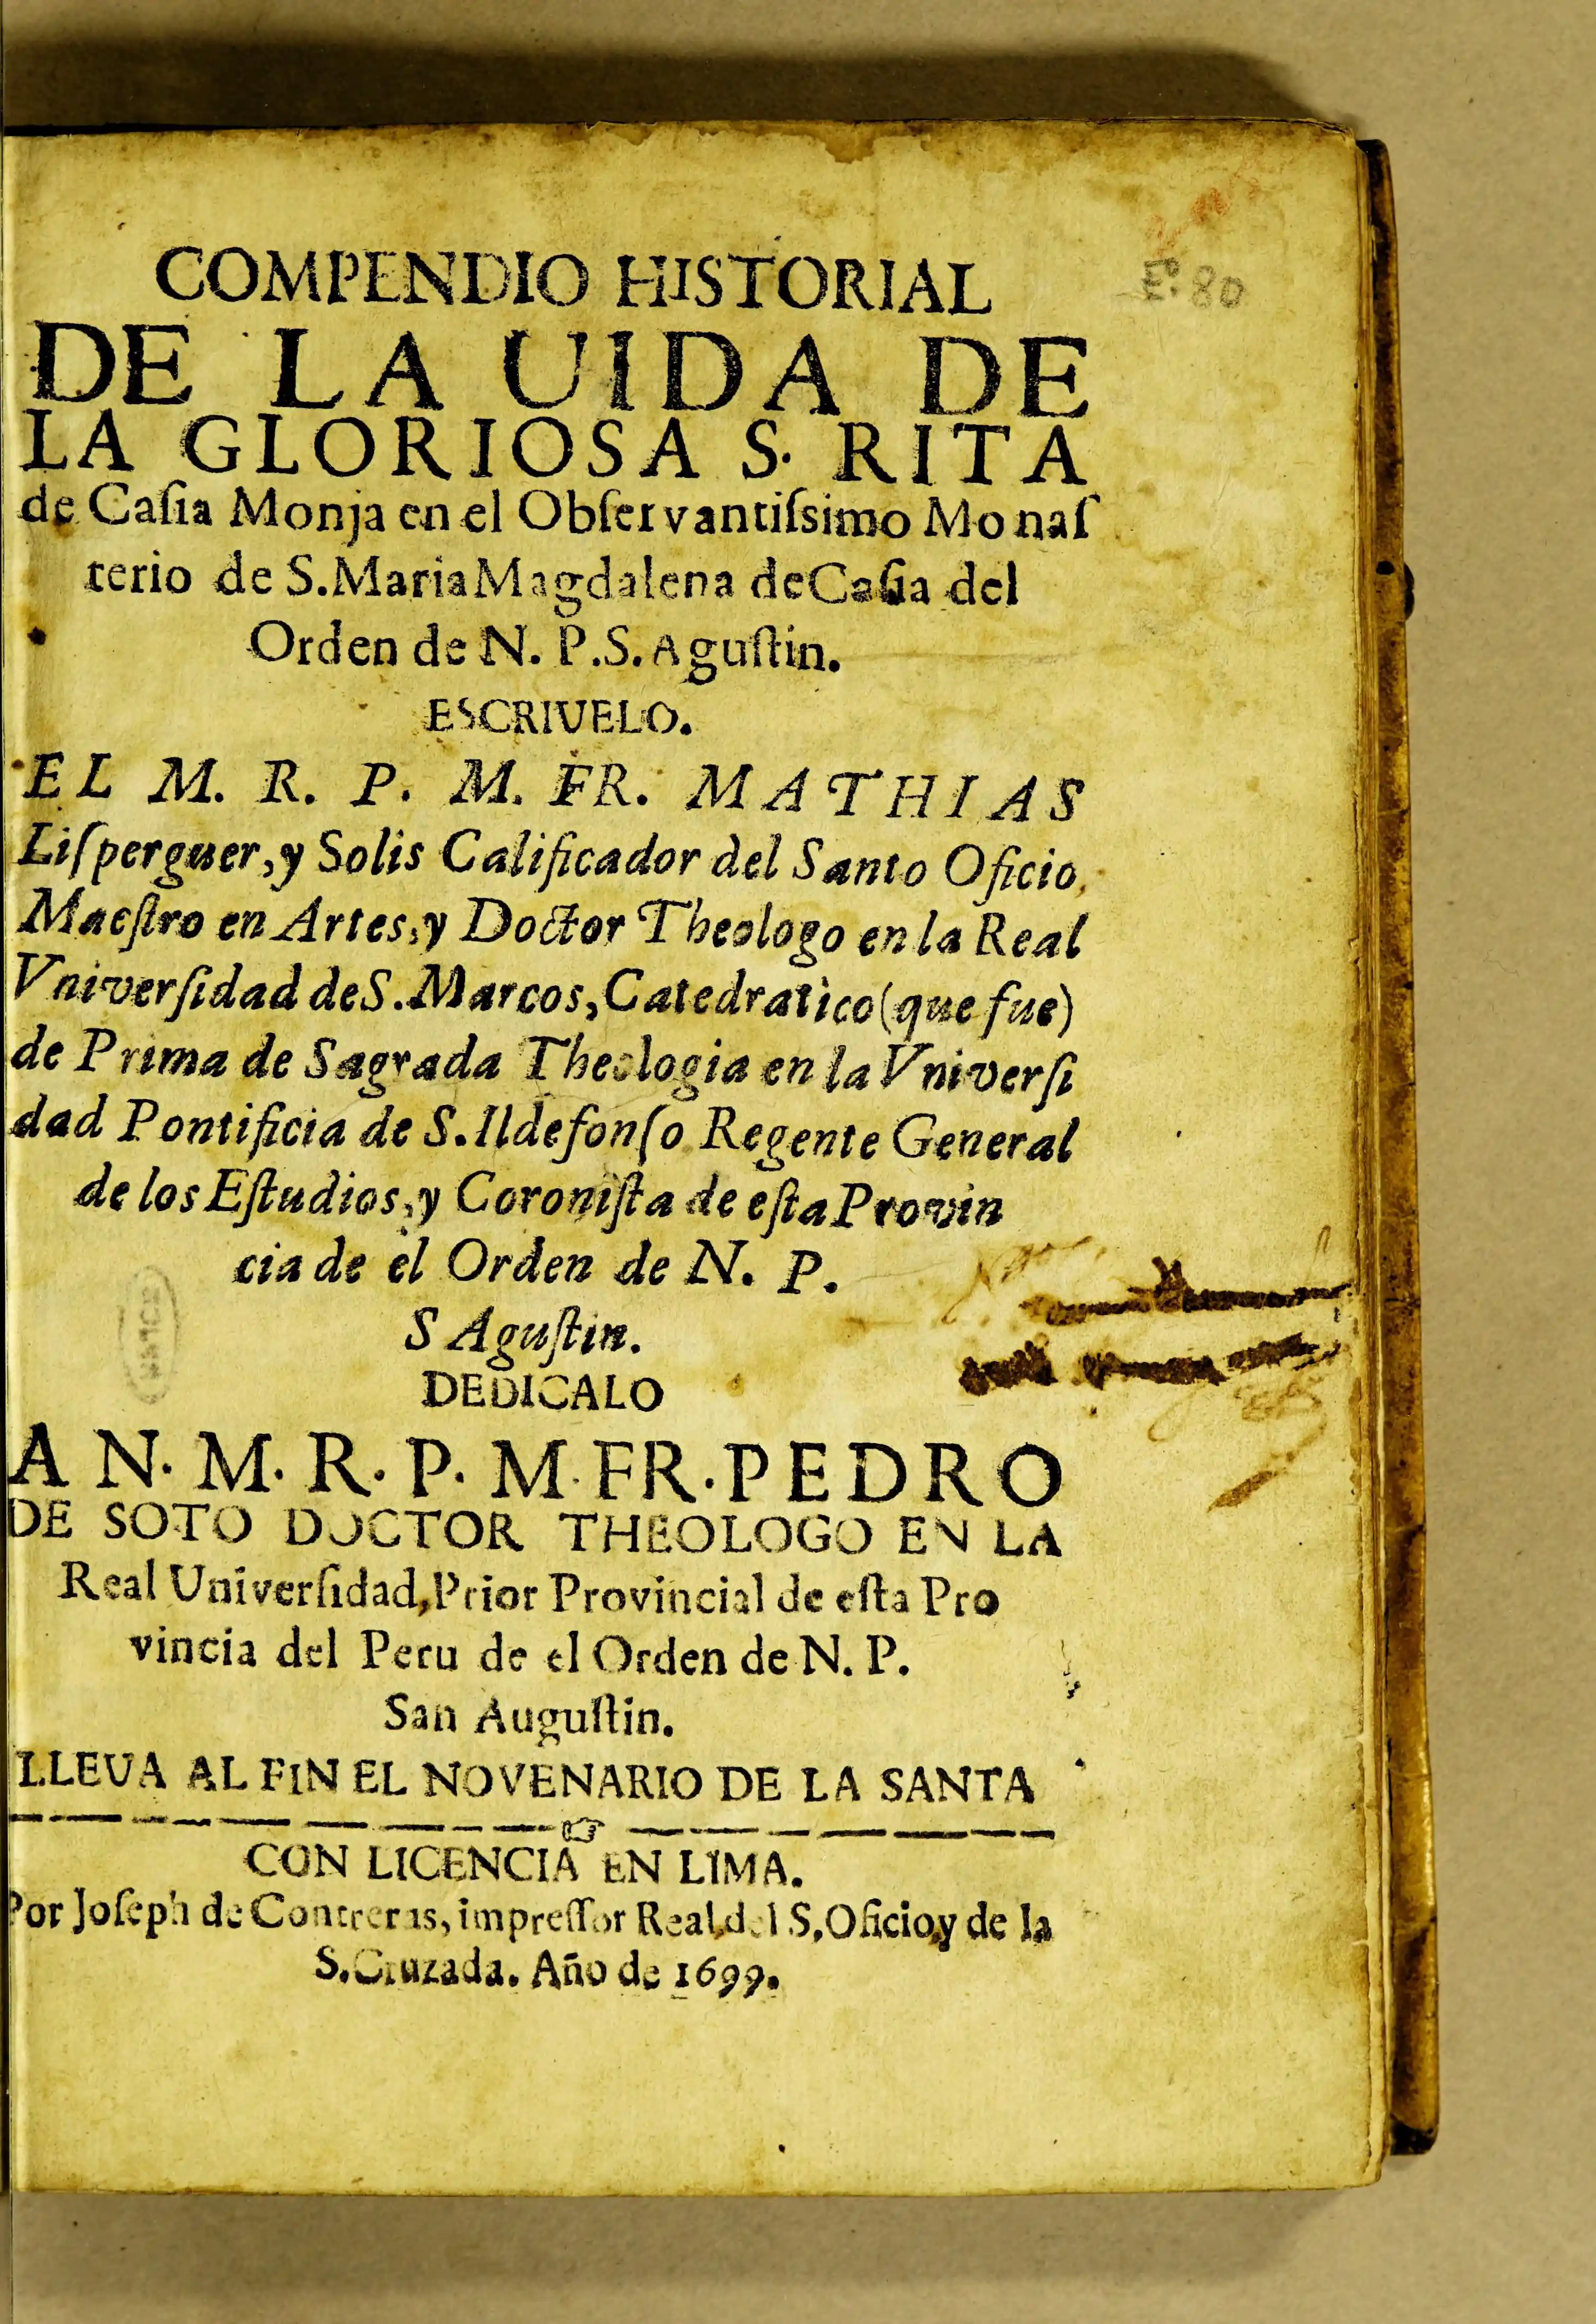 COMPENDIO HISTORIAL
E. 80
DE LA UIDA DE
LA GLORIOSA S. RITA
de Caſia Monja en el Obſervantiſsimo Monaſ
terio de S. Maria Magdalena de Caſia del
Orden de N. P. S. Aguſtin.
ESCRIUELO.
EL M. R. P. M. FR. MATHIAS
Liſperguer, y Solis Calificador del Santo Oficio,
Maeſtro en Artes, y Doctor Theologo en la Real
Vniverſidad de S. Marcos, Catedratico (que fue)
de Prima de Sagrada Theologia en la Vniverſi
dad Pontificia de S. Ildefonſo Regente General
de los Eſtudios, y Coroniſta de eſta Provin
cia de el Orden de N. P.
S Aguſtin.
DEDICALO
A N. M. R. P. M. FR. PEDRO
DE SOTO DOCTOR THEOLOGO EN LA
Real Univerſidad, Prior Provincial de eſta Pro
vincia del Peru de el Orden de N. P.
San Auguſtin.
LLEUA AL FIN EL NOVENARIO DE LA SANTA
CON LICENCIA EN LIMA.
Por Joſeph de Contreras, impreſſor Real, del S, Oficio, y de la
S. Cruzada. Año de 1699.